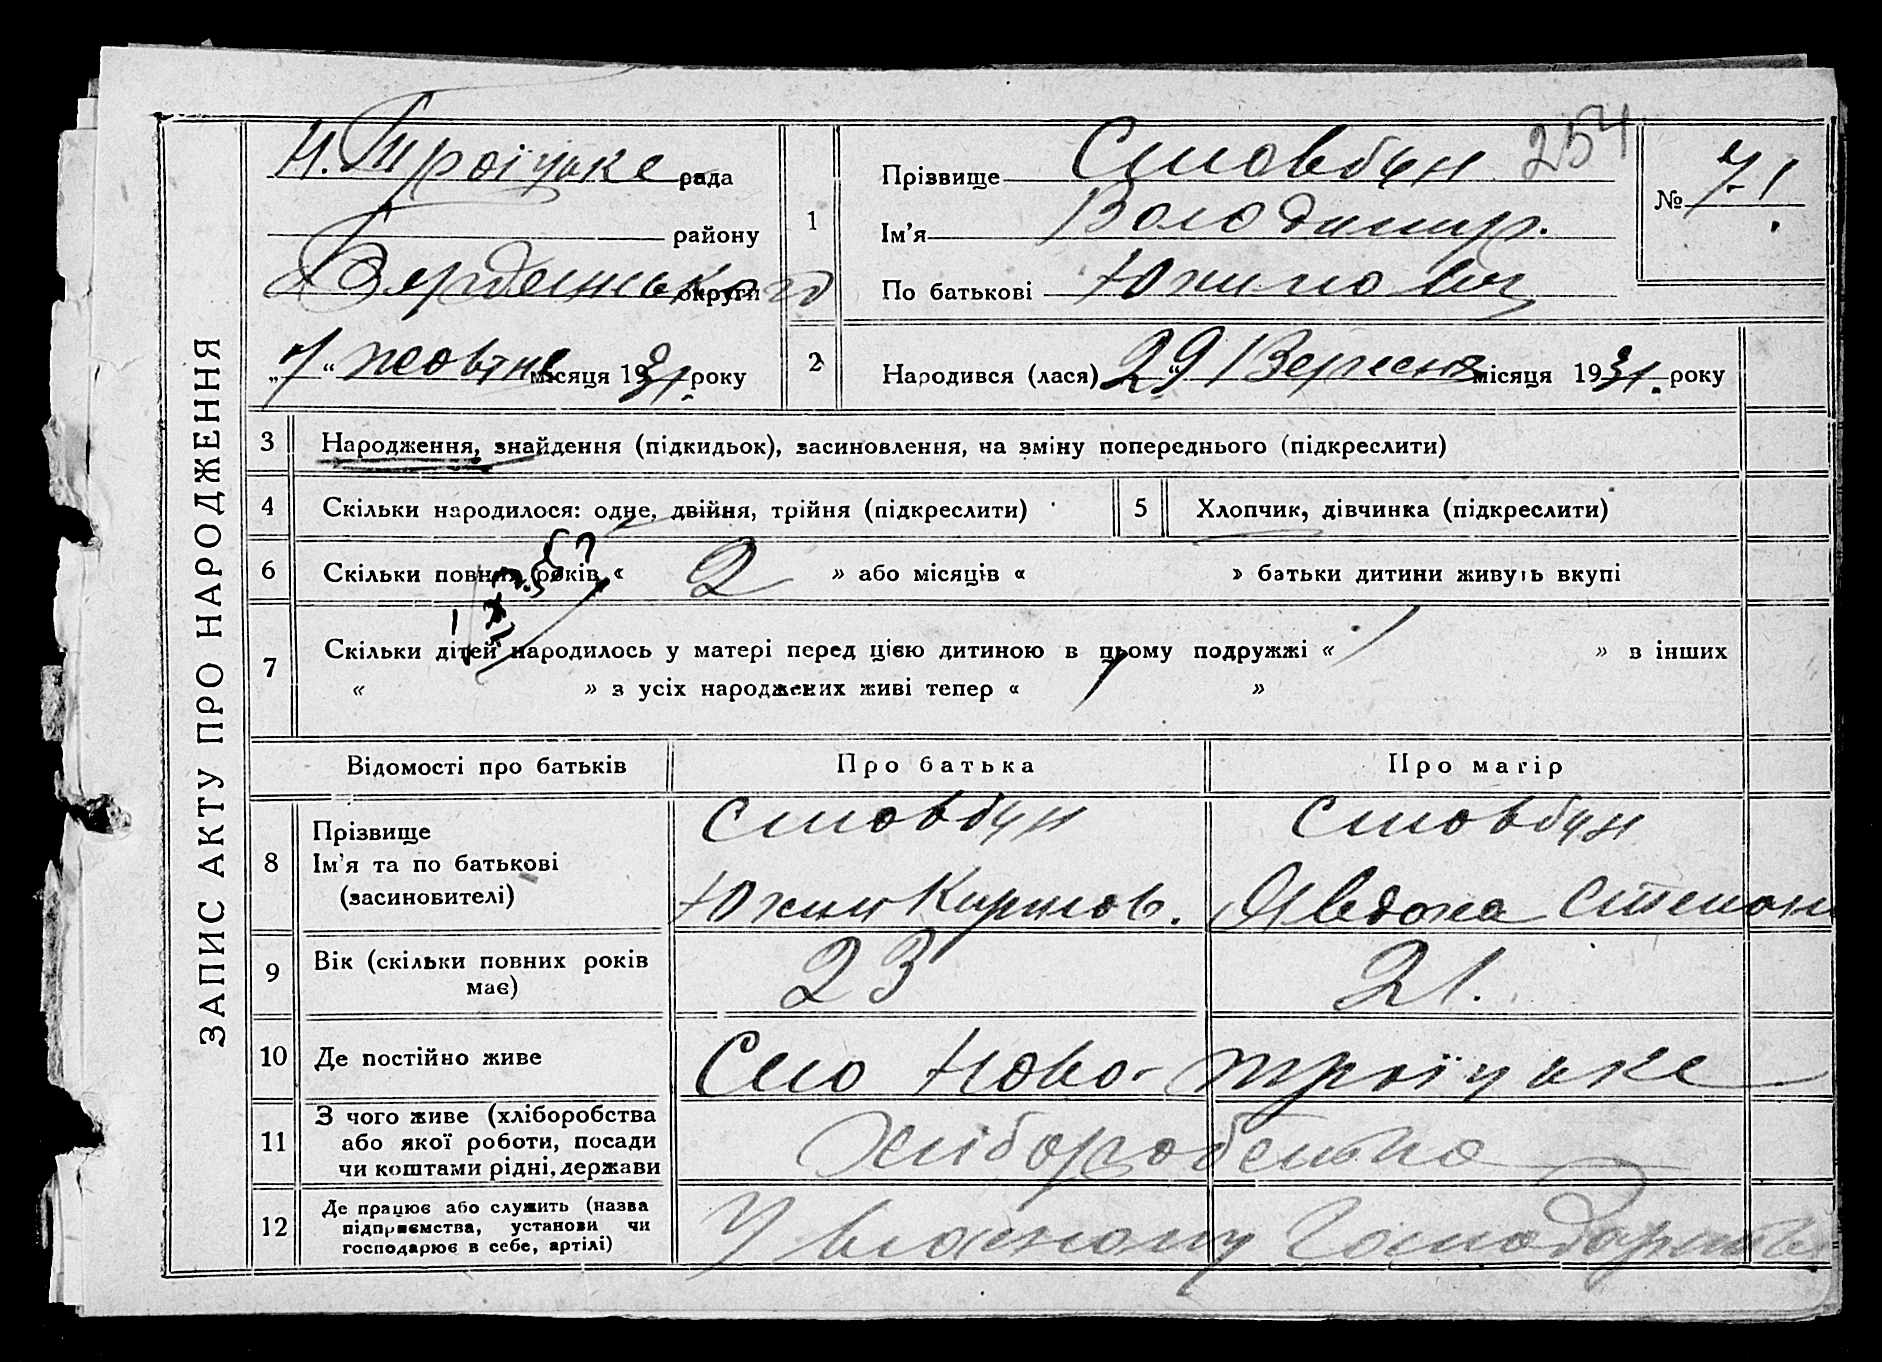 ЗАПИС АКТУ ПРО НАРОДЖЕННЯ
254
Н. Троїцьке рада
району
Бердянського округи
„7“ жовтня місяця 1931 року
1
Прізвище Стовбун
Ім’я Володимир.
По батькові Юхимович
№ 71.
2
Народився (лася) „29“ Вересня місяця 1931. року
3 Народження, знайдення (підкидьок), засиновлення, на зміну попереднього (підкреслити)
4 Скільки народилося: одне, двійня, трійня (підкреслити)
5 Хлопчик, дівчинка (підкреслити)
6 Скільки повних років « 2 » або місяців « » батьки дитини живуть вкупі
7 Скільки дітей народилось у матері перед цією дитиною в цьому подружжі « 1 » в інших
« » з усіх народжених живі тепер « 1 »
Відомості про батьків Про батька Про матір
8 Прізвище
Ім’я та по батькові
(засиновителі)
Стовбун Стовбун
Юхим Кирилов. Явдоха Степан
9 Вік (скільки повних років
має)
23 21.
10 Де постійно живе Село Ново-Троїцьке
11 З чого живе (хліборобства
або якої роботи, посади
чи коштами рідні, держави
Хліборобства
12 Де працює або служить (назва
підприємства, установи чи
господарює в себе, артілі)
У власному Господарстві